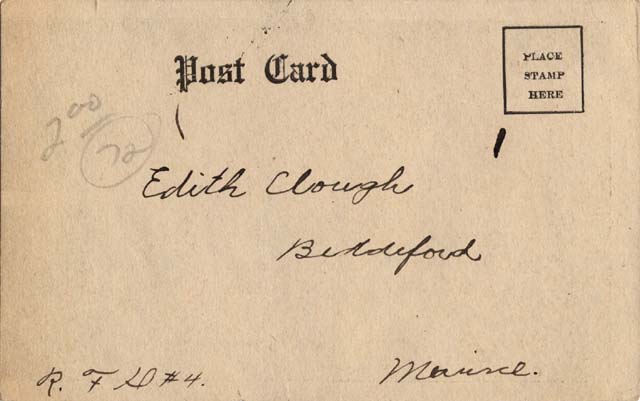 Post Card
PLACE
STAMP
HERE
200
72
Edith Clough
Biddeford
R. F D #4.
Maine.